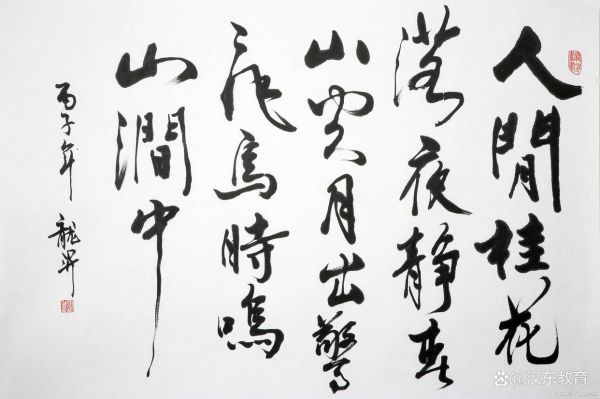 人閒桂花
落夜靜春
山空月出驚
飛鳥時鳴
山澗中
丙子年
@汉东教育